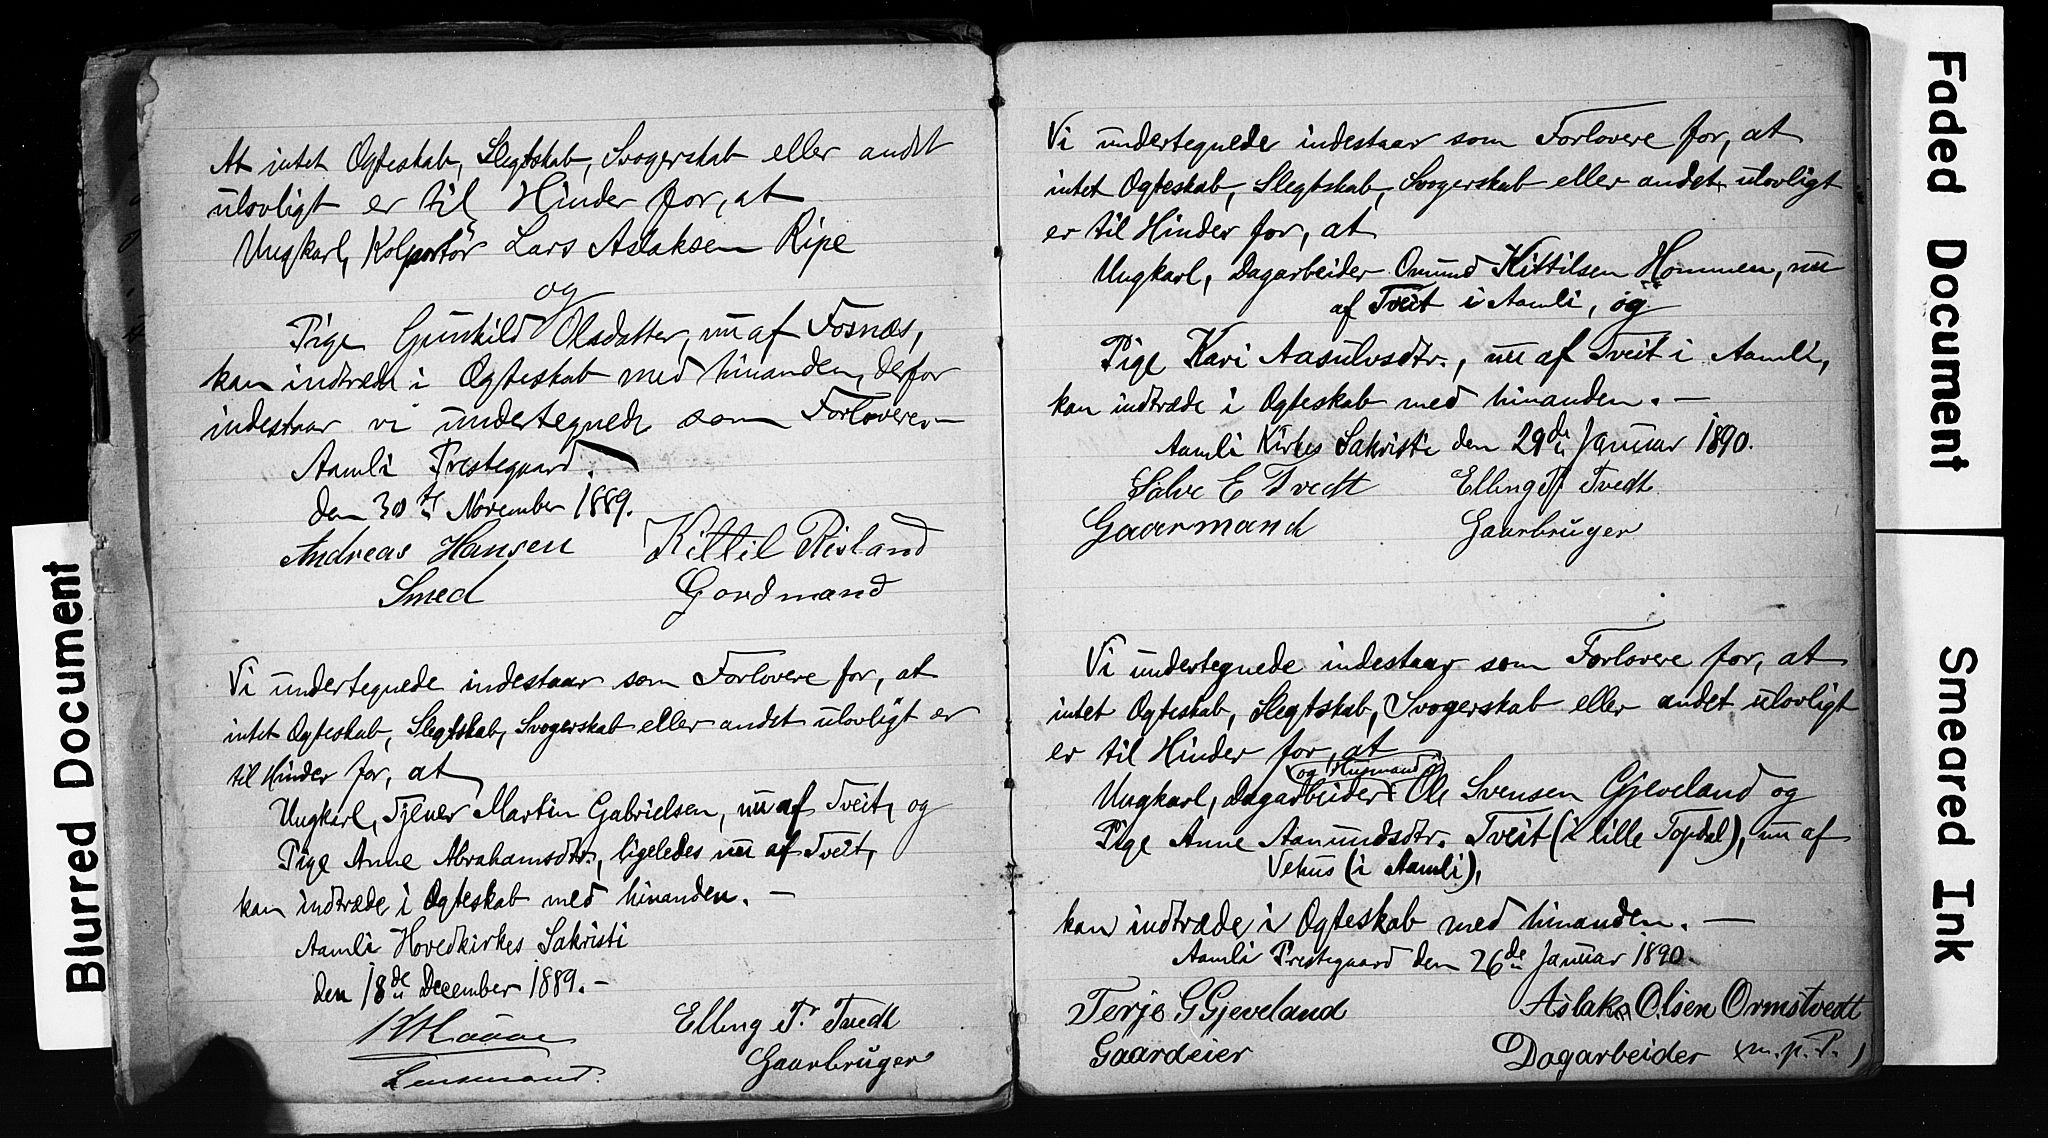 At intet Ogteskab, Slegtskab, Svogerskab eller andet
ulovligt er til Hinder for, at
Ungkarl, Kolportør Lars Aslaksen Ripe
og
Pige Gunhild Olsdatter, nu af Fosnæs,
kan indtræde i Ogteskab med hinanden, derfor
indestaar vi undertegnede som Forlovere.—
Aamli Prestegaard.
den 30te November 1889.
Andreas Hansen Kittil Risland
Smed Gordmand
Vi undertegnede indestaar som Forlovere for, at
intet Ogteskab, Slegtskab, Svogerskab eller andet ulovligt er
til Hinder for, at
Ungkarl, Tjener Martin Gabrielsen, nu af Tveit, og
Pige Anne Abrahamsdtr., ligeledes nu af Tveit,
kan indtræde i Ogteskab med hinanden. —
Aamli Hovedkirkes Sakristi
den 18de December 1889. —
Elling T. Tvedt
Lensmand. Gaarbruger
Vi undertegnede indestaar som Forlovere for, at
intet Ogteskab, Slegtskab, Svogerskab eller andet ulovligt
er til Hinder for, at
Ungkarl, Dagarbeider Omund Kittilsen Hommen, nu
af Tveit i Aamli, og
Pige Kari Aasulvsdtr., nu af Tveit i Aamli,
kan indtræde i Ogteskab med hinanden. —
Aamli Kirkes Sakristi den 29de Januar 1890.
Salve E Tvedt Elling T Tvedt
Gaarmand Gaarbruger
Vi undertegnede indestaar som Forlovere for, at
intet Ogteskab, Slegtskab, Svogerskab eller andet ulovligt
er til Hinder for, at
og Husmand
Ungkarl, Dagarbeider Ole Svensen Gjeveland og
Pige Anne Aamundsdtr. Tveit (i lille Topdal), nu af
Vehus (i Aamli),
kan indtræde i Ogteskab med hinanden. —
Aamli Prestegaard den 26de Januar 1890.
Terje G Gjeveland Aslak Olsen Ormstvedt
Gaardeier Dagarbeider (m. p. P.)
Blurred Document
Faded Document
Smeared Ink